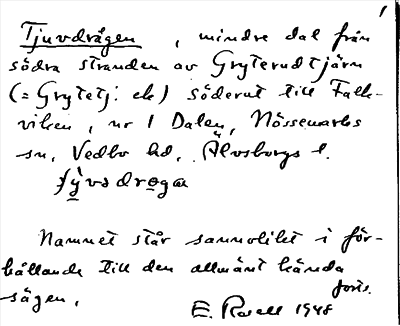 1
Tjuvdrågen, mindre dal från
södra stranden av Gryterudtjärn
(= Grytetj. ek) söderut till Falk-
viken, nr 1 Dalen, Nössemarks
sn, Vedbo hd, Älvsborgs l.
Namnet står sannolikt i för-
hållande till den allmänt kända
sägen, forts.
E. Rosell 1948